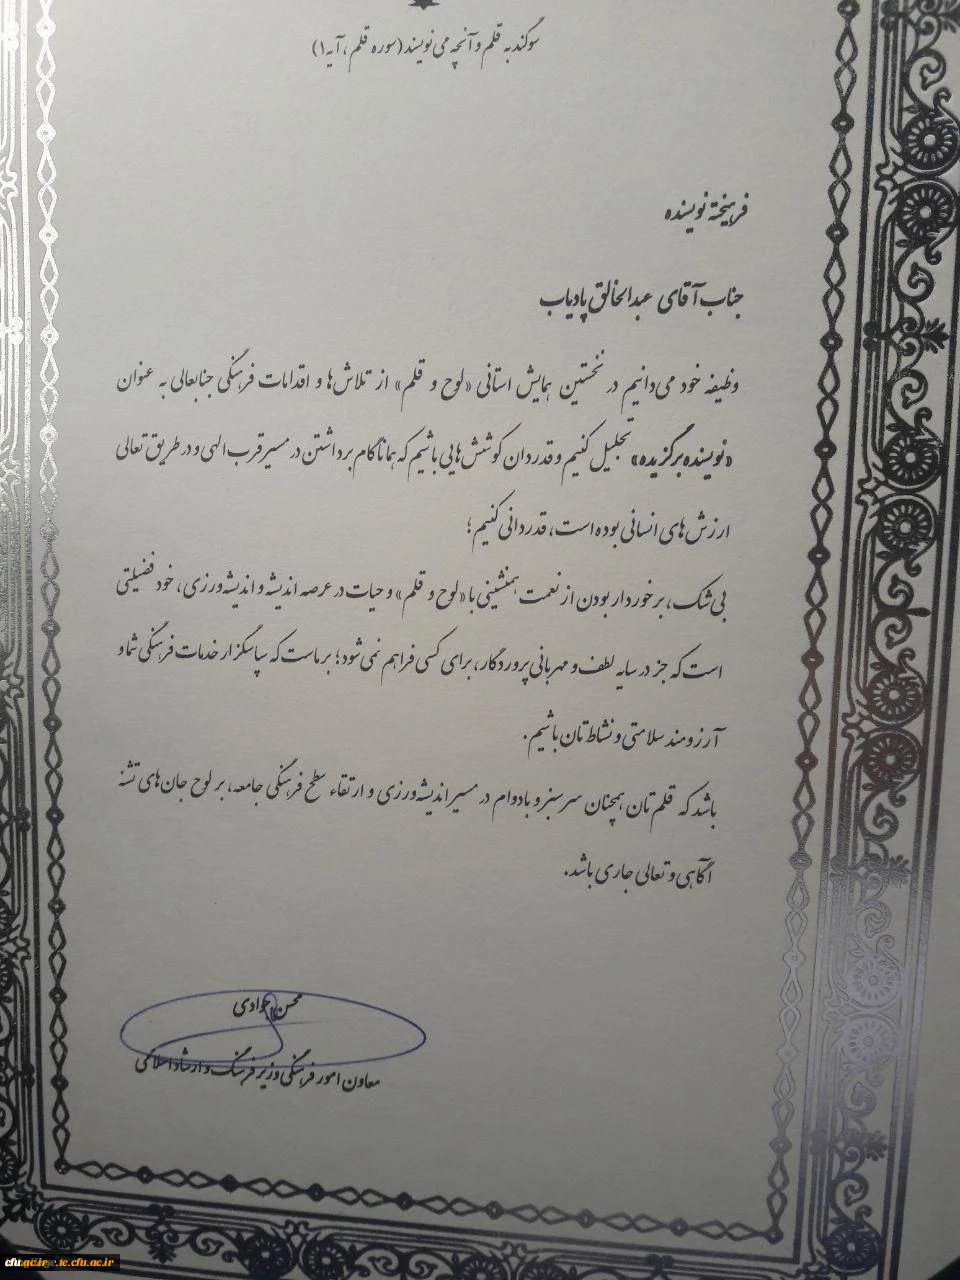 سوگند به قلم و آنچه می نویسند (سوره قلم، آیه ۱)
فرهیخته نویسنده
جناب آقای عبدالخالق پادیاب
وظیفه خود می‌دانیم در نخستین همایش استانی «لوح و قلم» از تلاش‌ها و اقدامات فرهنگی جنابعالی به عنوان
«نویسنده برگزیده» تجلیل کنیم و قدردان کوشش‌هایی باشیم که همانا گام برداشتن در مسیر قرب الهی و در طریق تعالی
ارزش‌های انسانی بوده است، قدردانی کنیم؛
بی‌شک، برخوردار بودن از نعمت همنشینی با «لوح و قلم» و حیات در عرصه اندیشه و اندیشه‌ورزی، خود فضیلتی
است که جز در سایه لطف و مهربانی پروردگار، برای کسی فراهم نمی‌شود؛ بر ماست که سپاسگزار خدمات فرهنگی شما و
آرزومند سلامتی و نشاط‌تان باشیم.
باشد که قلم‌تان همچنان سرسبز و بادوام در مسیر اندیشه‌ورزی و ارتقاء سطح فرهنگی جامعه، بر لوح جان‌های تشنه
آگاهی و تعالی جاری باشد.
محسن جوادی
معاون امور فرهنگی وزیر فرهنگ و ارشاد اسلامی